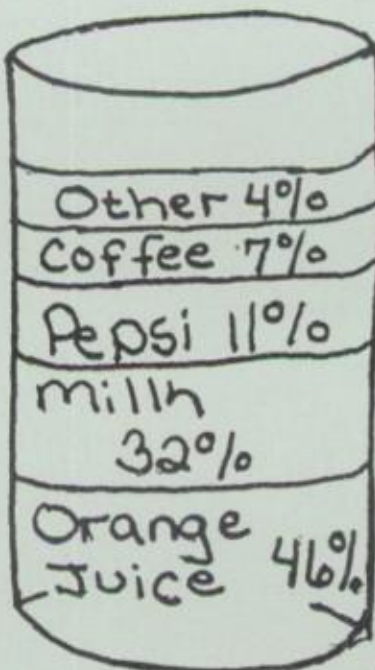 Other 4%
Coffee 7%
Pepsi 11%
Millh
32%
Orange
Juice 46%